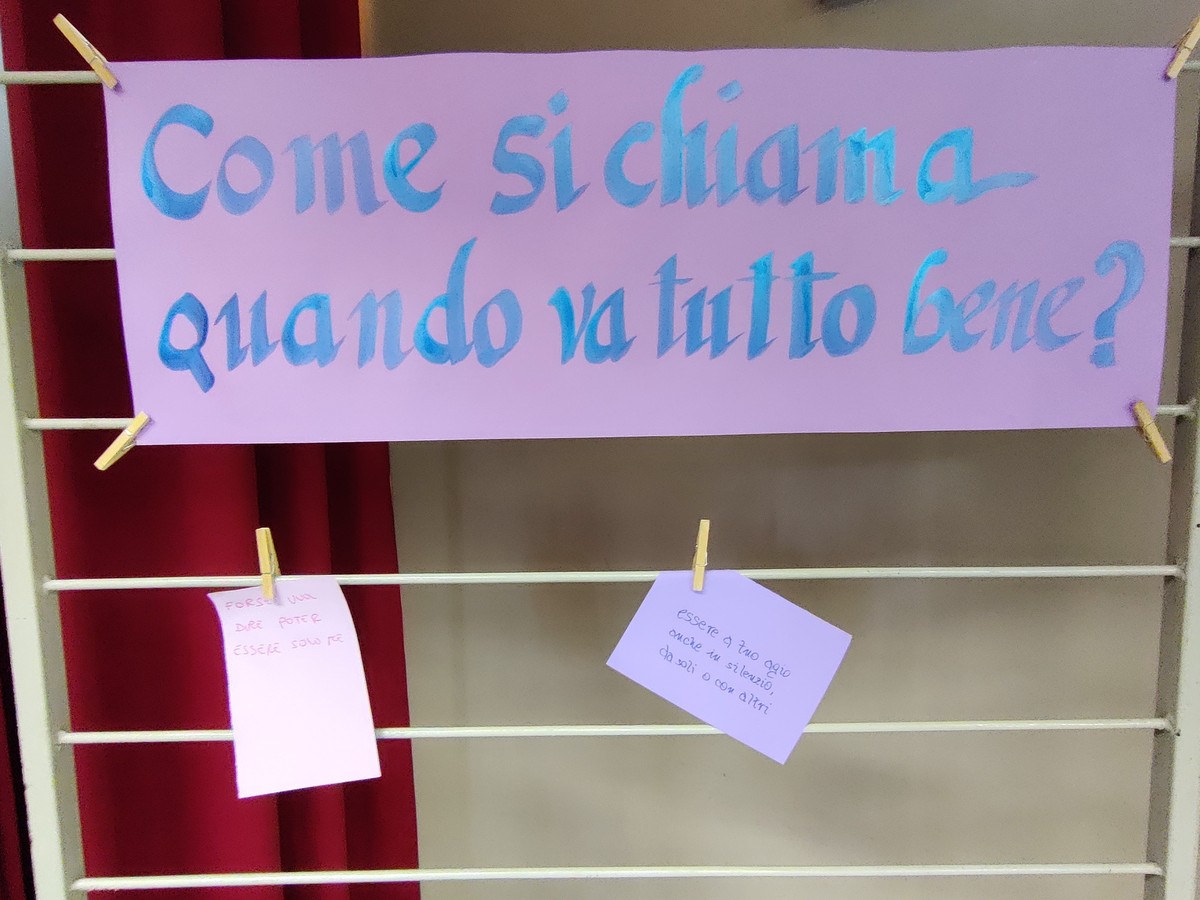 Come si chiama
quando va tutto bene?
FORSE VUOL
DIRE POTER
ESSERE SOLO ME
essere a tuo agio
anche in silenzio,
da soli o con altri